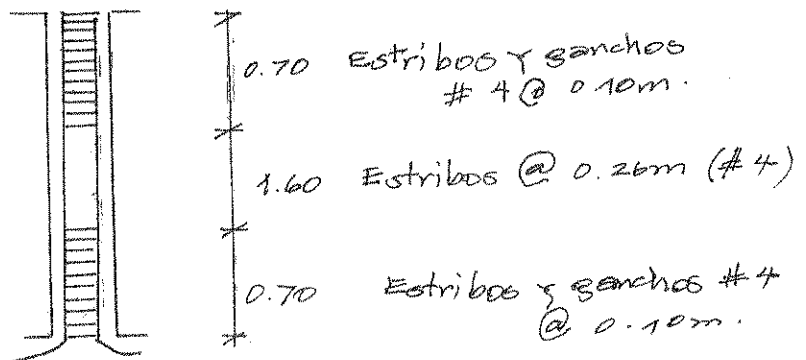 0.70 Estribos y ganchos
# 4 @ 0.10m.
1.60 Estribos @ 0.26m (#4)
0.70 Estribos y ganchos #4
@ 0.10m.